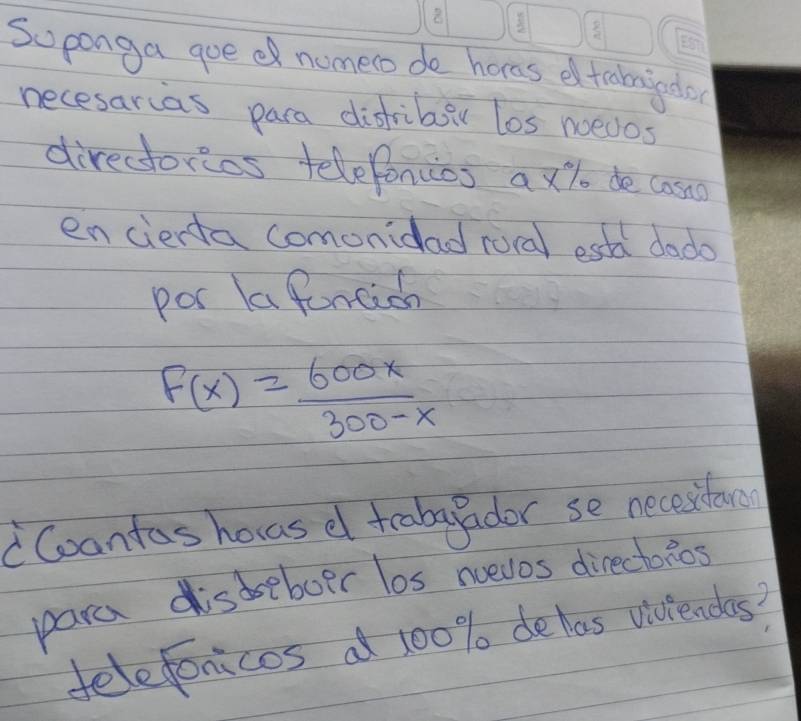 Suponga que el numero de horas el trabajador
necesarias para distribuir los nuevos
directorios telefonicos a x% de casas
en cierta comunidad rural está dado
por la función
F(x) = 600x / 300-x
¿Cuantas horas el trabajador se necesitaron
para distrebuer los nuevos directorios
telefonicos al 100% de las viviendas?